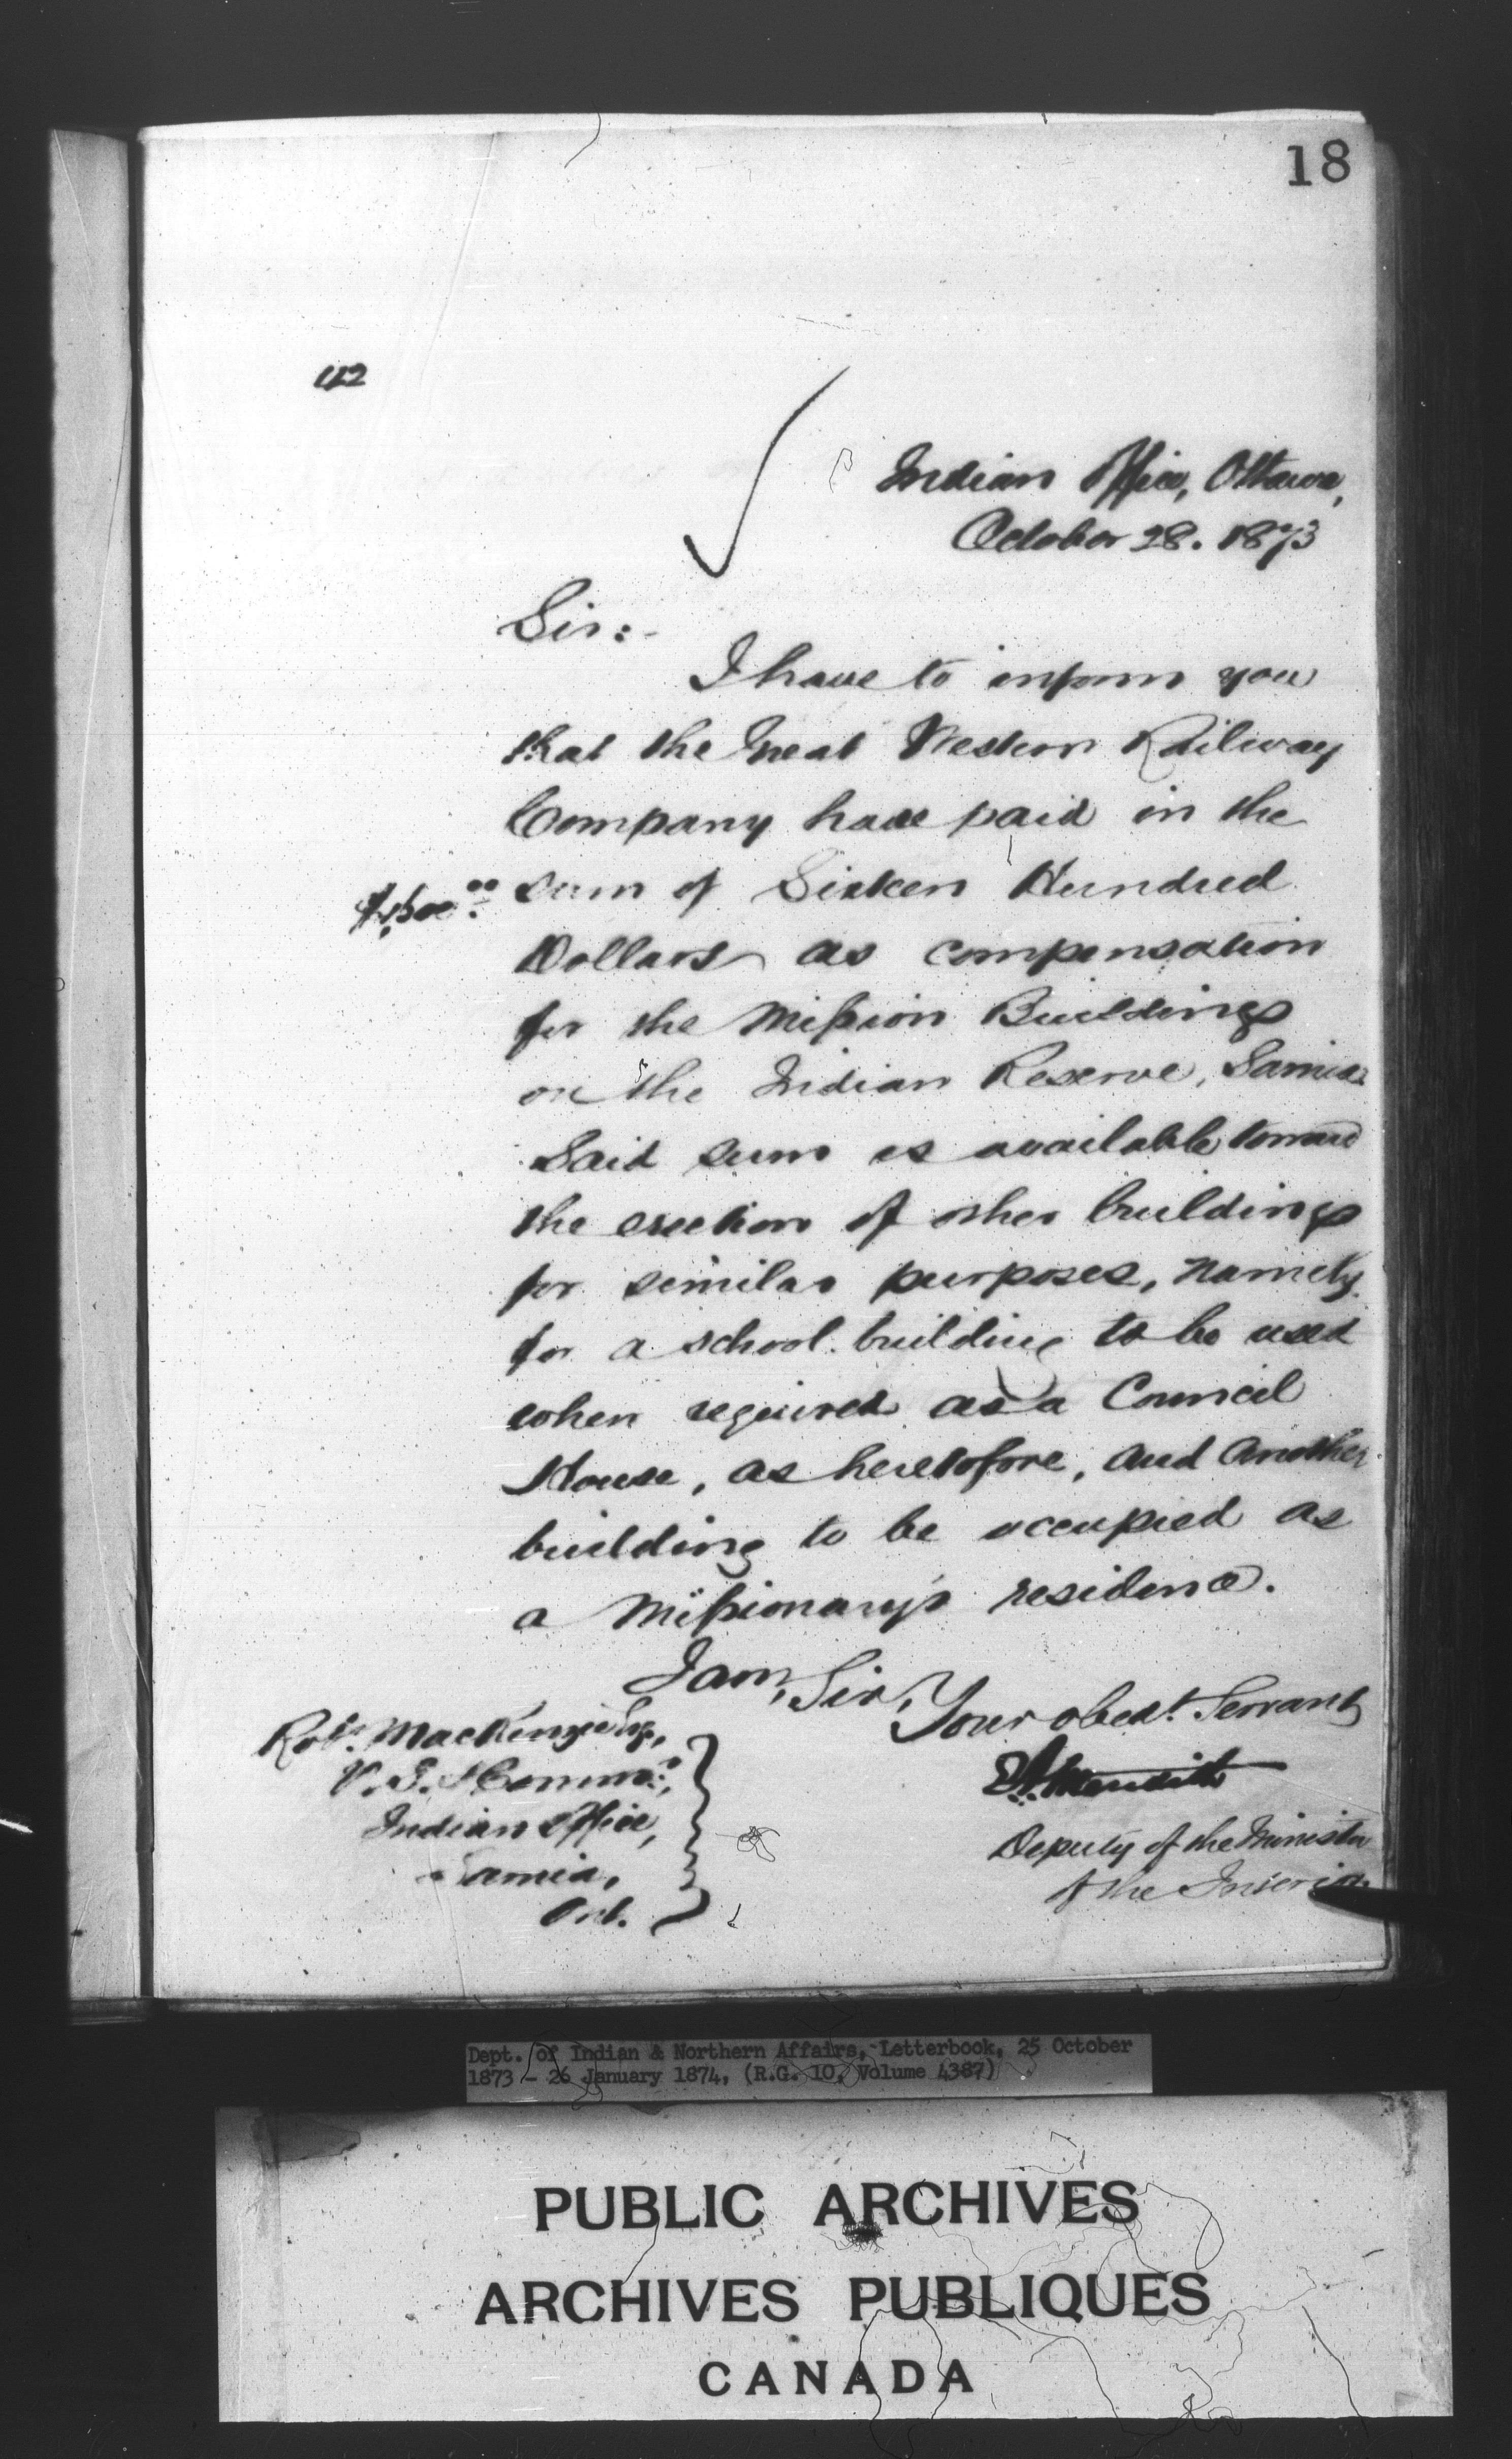 18
42
Indian Office, Ottawa,
October 28. 1873
Sir:-
I have to inform you
that the Great Western Railway
Company have paid in the
$1,600.00 sum of Sixteen Hundred
Dollars as compensation
for the Mission Buildings
on the Indian Reserve, Sarnia.
Said sum is available toward
the erection of other buildings
for similar purposes, namely
for a school building to be used
when required as a Council
House, as heretofore, and another
building to be occupied as
a Missionary's residence.
I am, Sir,
Your obedt. Servant
E A Meredith
Deputy of the Minister
of the Interior
Robt. MacKenzie Esq,
V. S. & Commr.,
Indian Office,
Sarnia,
Ont.
Dept. of Indian & Northern Affairs, Letterbook, 25 October
1873 - 26 January 1874, (R.G. 10, Volume 4387)
PUBLIC ARCHIVES
ARCHIVES PUBLIQUES
CANADA